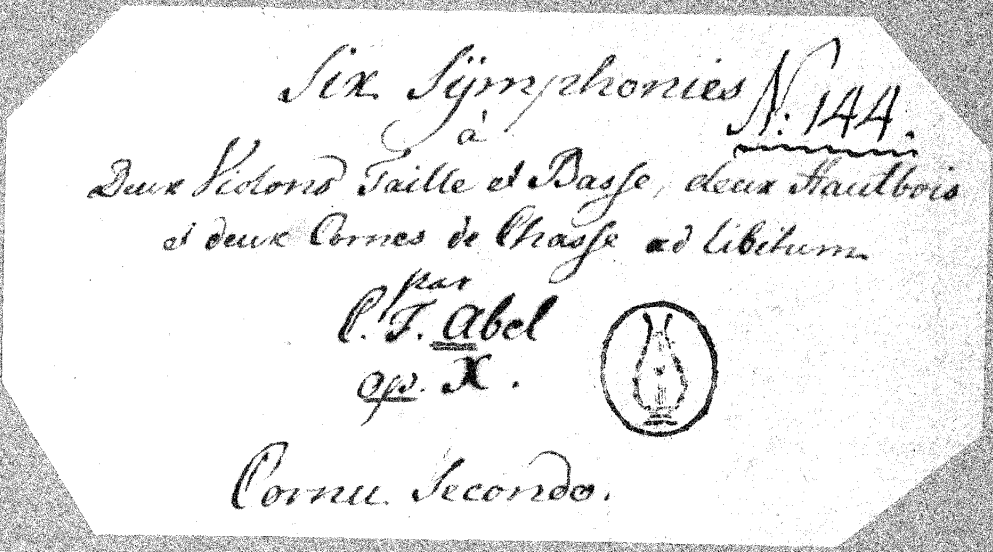 Six Sÿmphonies
N: 144.
à
Deux Violons Taille et Basse, deux Hautbois
et deux Cornes de Chasse ad libitum
par
C. F. Abel
Op. X.
Cornu Secondo.